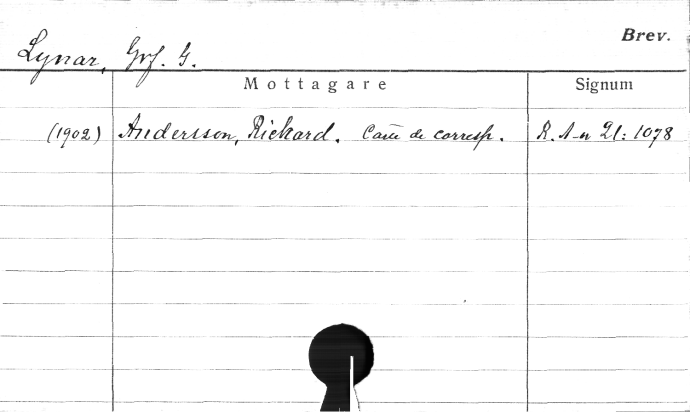 Brev.
Lynar, Grf. G.
Mottagare Signum
(1902) Andersson, Rickard. Carte de corresp. R. A-n 21: 1078